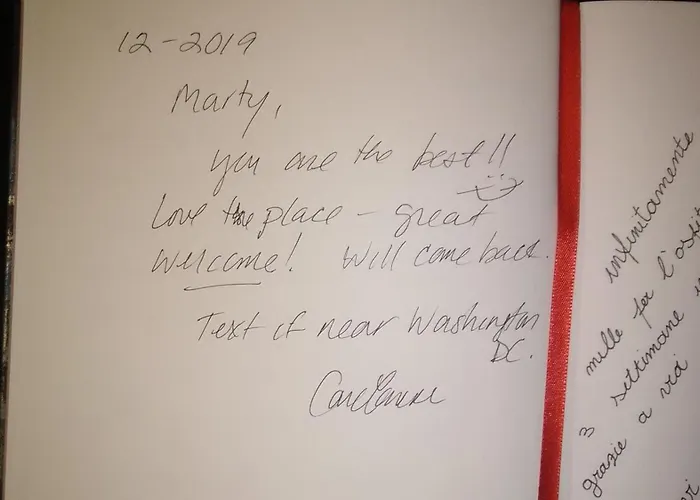 12-2019
Marty,
you are the best!!
Love the place - great
welcome! Will come back.
Text if near Washington
DC.
infinitamente
mille per l'
3 settimane
grazie a voi